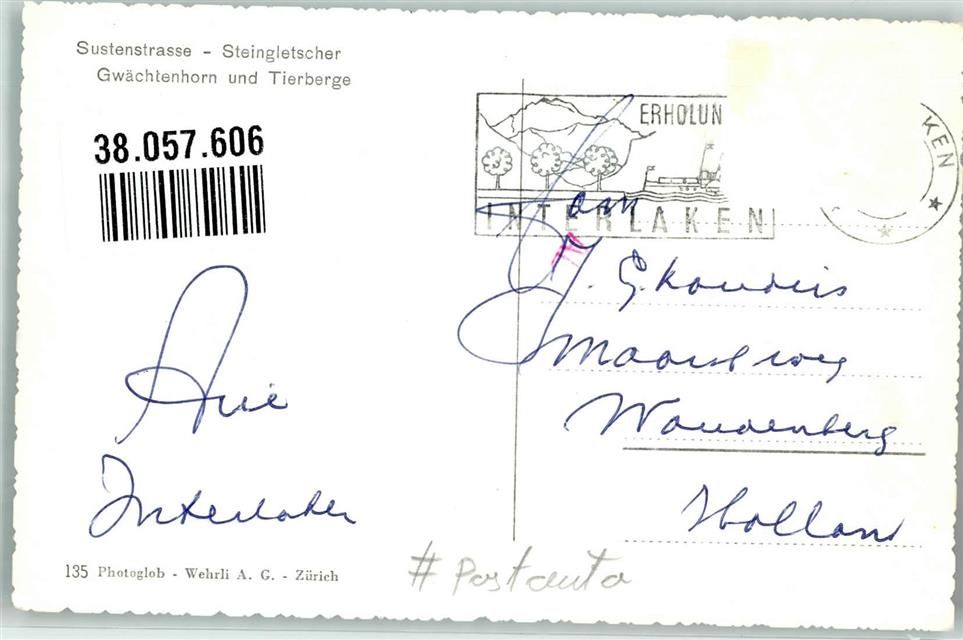 Sustenstrasse - Steingletscher
Gwächtenhorn und Tierberge
38.057.606
ERHOLUN
INTERLAKEN
KEN
Fam
J. G.
Maarsb weg
Woudenberg
Holland
Arie
Interlaken
135 Photoglob - Wehrli A. G. - Zürich
# Postauto